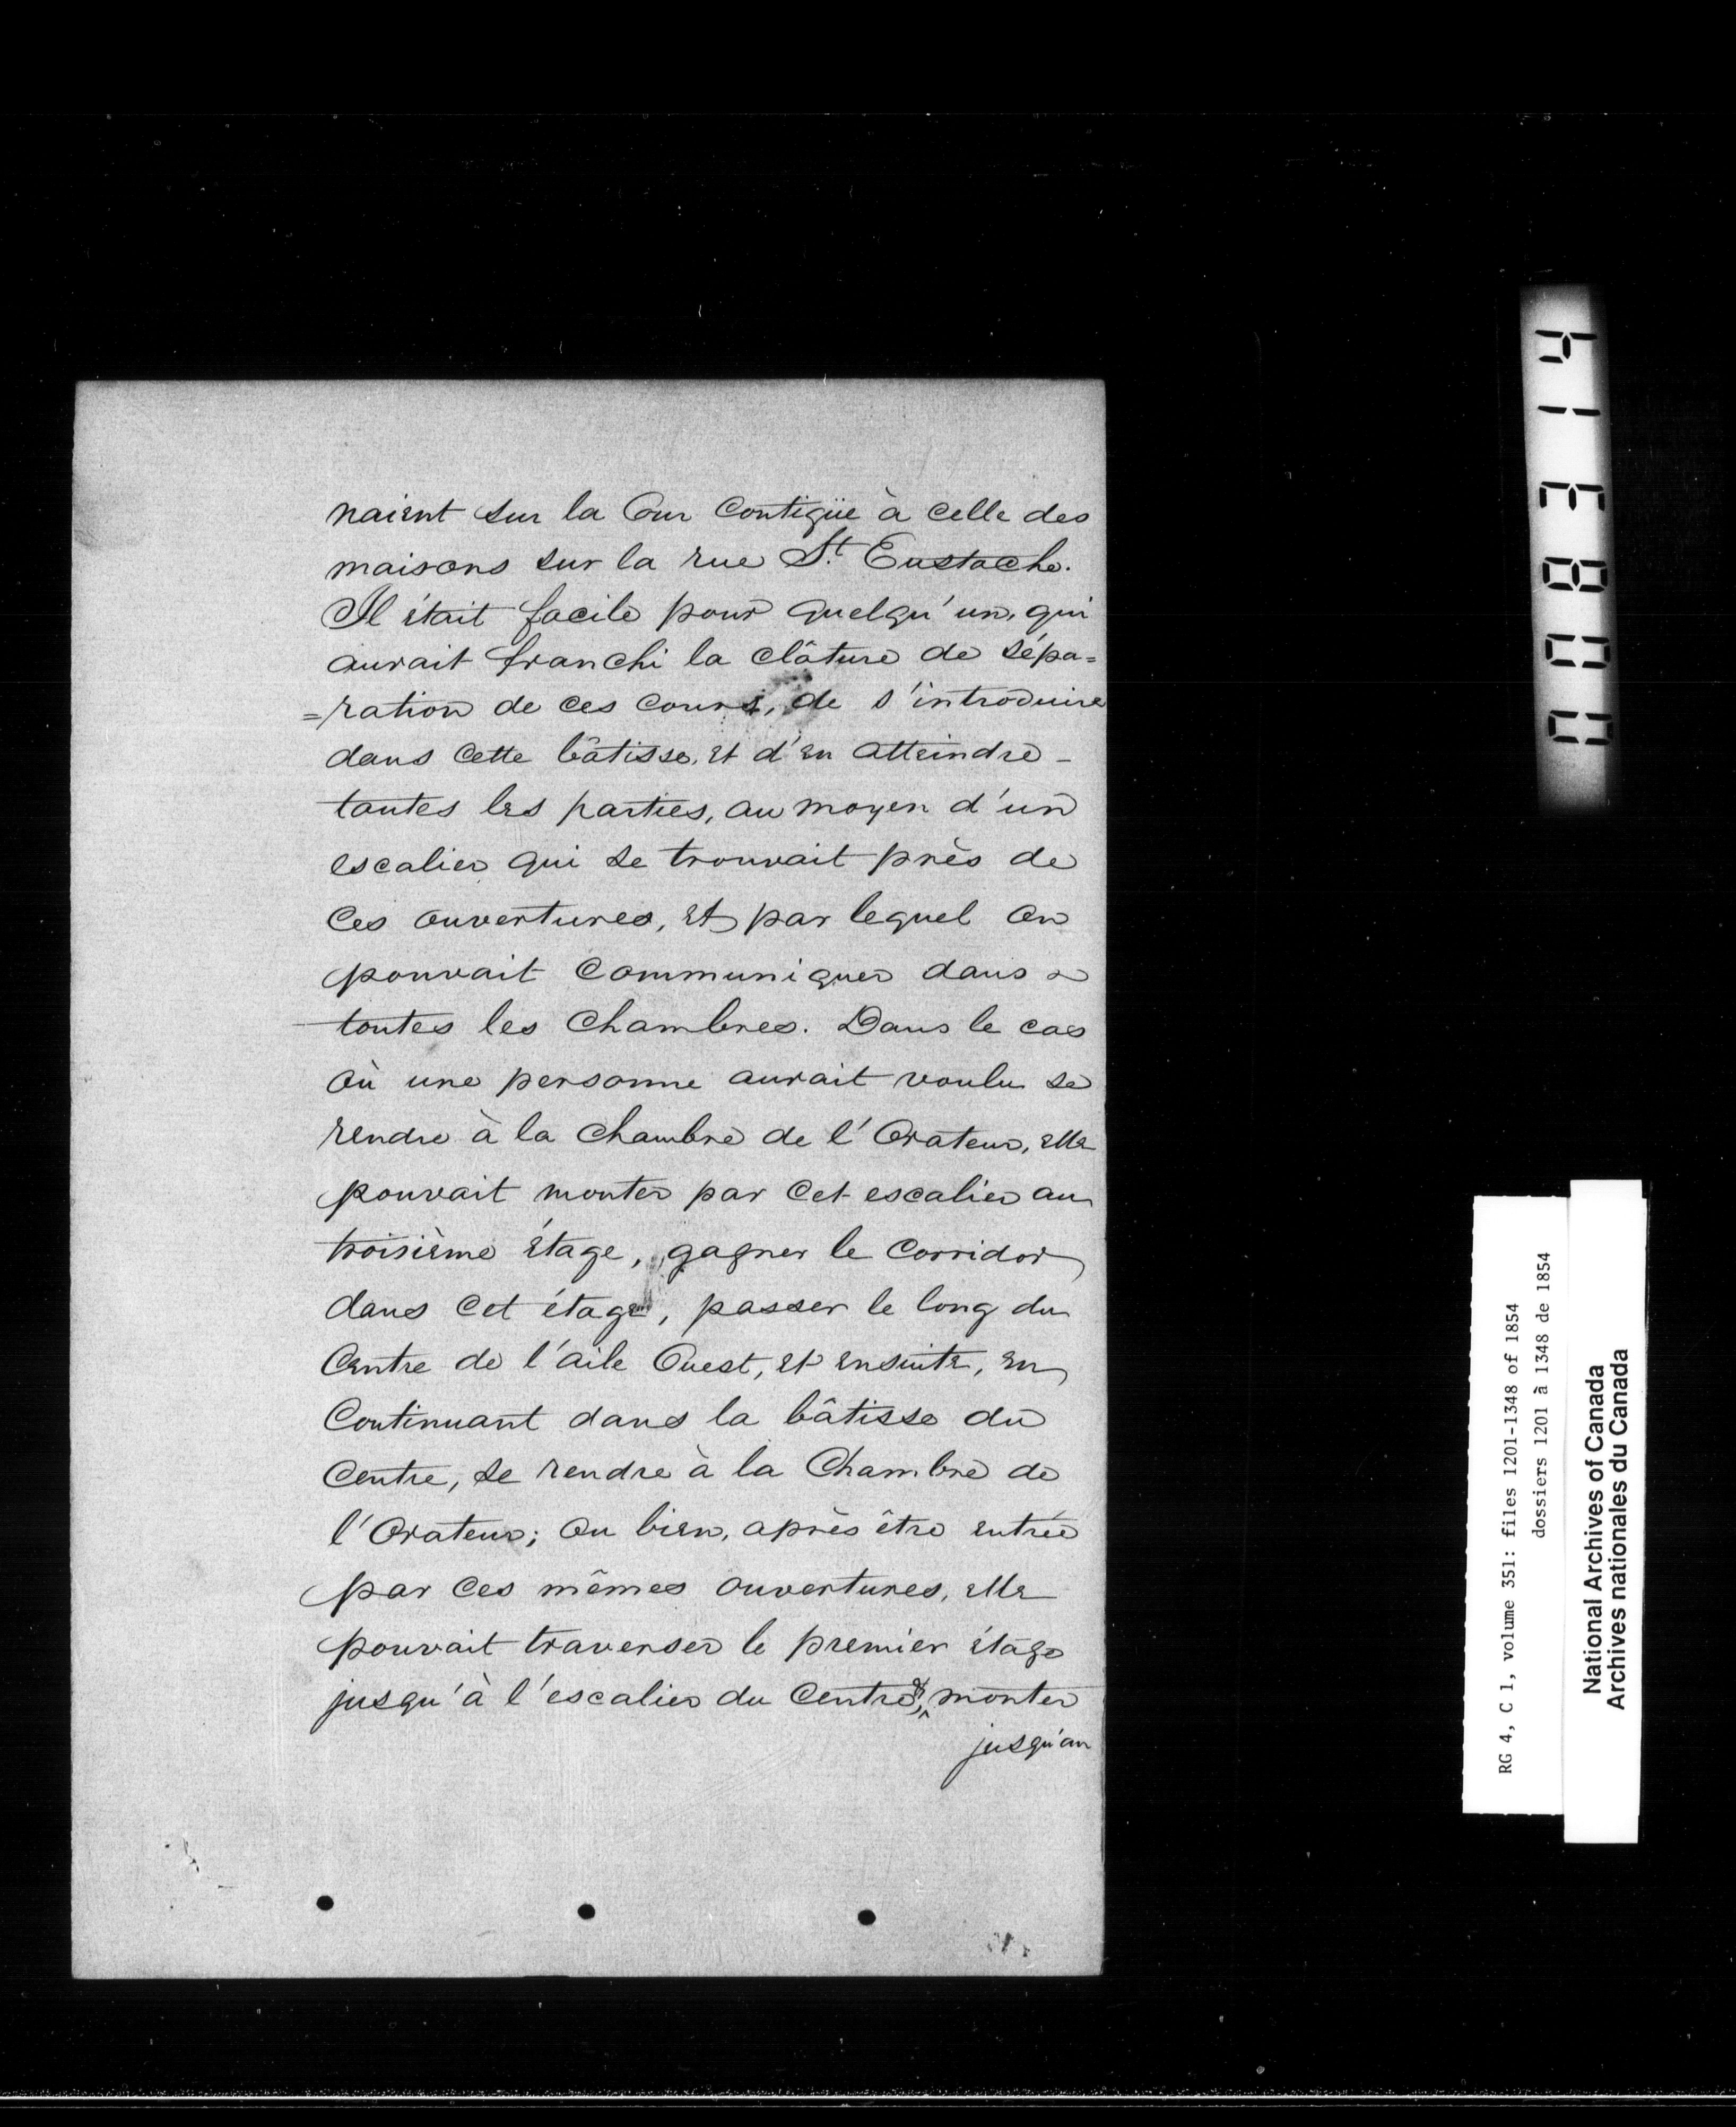 naient sur la Cour Contigüe à celle des
maisons sur la rue St. Eustache.
Il était facile pour quelqu'un, qui
aurait franchi la clâture de sépa=
=ration de ces cours, de s'introduire
dans cette bâtisse, et d'en atteindre -
toutes les parties, au moyen d'un
escalier qui se trouvait près de
Ces ouvertures, et par lequel on
pouvait Communiquer dans
toutes les Chambres. Dans le cas
où une personne aurait voulu se
rendre à la Chambre de l'Orateur, elle
pouvait monter par cet escalier au
troisième étage, gagner le Corridor
dans cet étage, passer le long du
Centre de l'aile Ouest, et ensuite, en
Continuant dans la bâtisse du
Centre, se rendre à la Chambre de
l'Orateur; ou bien, après être entrée
par ces mêmes ouvertures, elle
pouvait traverser le premier étage
jusqu'à l'escalier du Centre, & monter
jusqu'au
00834 14
RG 4, C 1, volume 351: files 1201-1348 of 1854
dossiers 1201 à 1348 de 1854
National Archives of Canada
Archives nationales du Canada